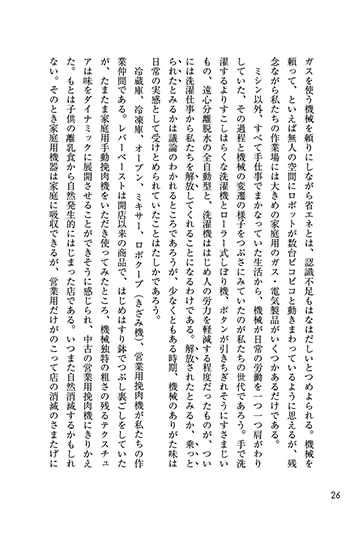 ガスを使う機械を頼りにしながら省エネとは、認識不足もはなはだしいとつめよられる。機械を
頼って、といえば無人の空間にロボットが数台ピコピコと動きまわっているように思えるが、残
念ながら私たちの作業場には大きめの家庭用のガス・電気製品がいくつかあるだけである。
ミシン以外、すべて手仕事でまかなっていた生活から、機械が日常の労働を一つ一つ肩がわり
していた、その過程と機械の変遷の様子をつぶさにみていたのが私たちの世代であろう。手で洗
濯するよりすこしはらくな洗濯機とローラー式しぼり機、ボタンが引きちぎれそうにすさまじい
もの、遠心分離脱水の全自動型と、洗濯機ははじめ人の労力を軽減する程度だったものが、つい
には洗濯仕事から私たちを解放してくれることになるわけである。解放されたとみるか、乗っと
られたとみるかは議論のわかれるところであろうが、少なくともある時期、機械のありがた味は
日常の実感として受けとめられていたことはたしかであろう。
冷蔵庫、冷凍庫、オーブン、ミキサー、ロボクープ（きざみ機）、営業用挽肉機が私たちの作
業仲間である。レバーペーストは開店以来の商品で、はじめはすり鉢でつぶし裏ごしをしていた
が、たまたま家庭用手動挽肉機をいただき使ってみたところ、機械独特の粗さの残るテクスチュ
アは味をダイナミックに展開させることができそうに感じられ、中古の営業用挽肉機にきりかえ
た。もとは子供の離乳食から自然発生的にはじまった店である。いつまた自然消滅するかもしれ
ない。そのとき家庭用機器は家庭に吸収できるが、営業用だけがのこって店の消滅のさまたげに
26